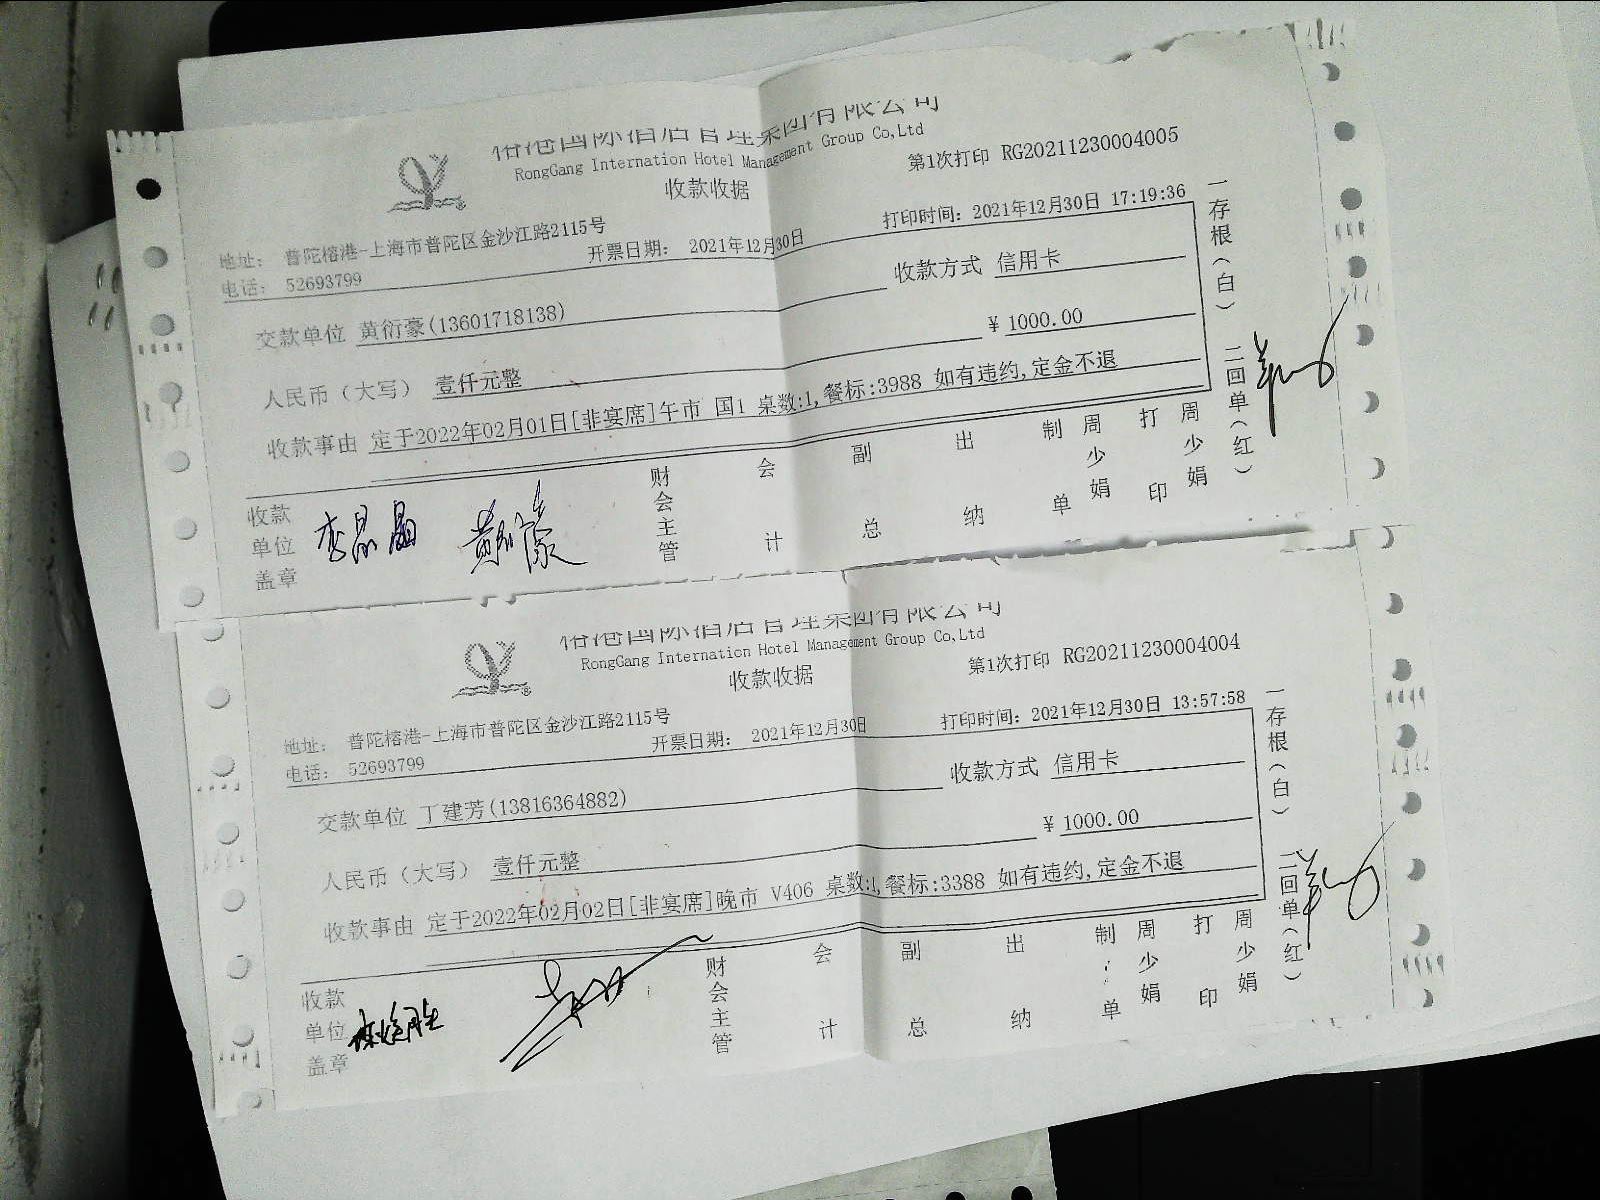 国际酒店管理集团有限公司
RongGang Internation Hotel Management Group Co,Ltd
收款收据
第1次打印 RG20211230004005
地址: 普陀榕港-上海市普陀区金沙江路2115号
电话: 52693799
开票日期: 2021年12月30日
打印时间: 2021年12月30日 17:19:36
收款方式 信用卡
交款单位 黄衍豪(13601718138)
¥ 1000.00
人民币（大写） 壹仟元整
收款事由 定于2022年02月01日[非宴席]午市 国1 桌数:1,餐标:3988 如有违约,定金不退
一存根(白) 二回单(红)
收款单位盖章 李晶晶 黄衍豪
财会主管 会计 副总 出纳 制单 周少娟 打印 周少娟
国际酒店管理集团有限公司
RongGang Internation Hotel Management Group Co,Ltd
收款收据
第1次打印 RG20211230004004
地址: 普陀榕港-上海市普陀区金沙江路2115号
电话: 52693799
开票日期: 2021年12月30日
打印时间: 2021年12月30日 13:57:58
收款方式 信用卡
交款单位 丁建芳(13816364882)
¥ 1000.00
人民币（大写） 壹仟元整
收款事由 定于2022年02月02日[非宴席]晚市 V406 桌数:1,餐标:3388 如有违约,定金不退
一存根(白) 二回单(红)
收款单位盖章
财会主管 会计 副总 出纳 制单 周少娟 打印 周少娟